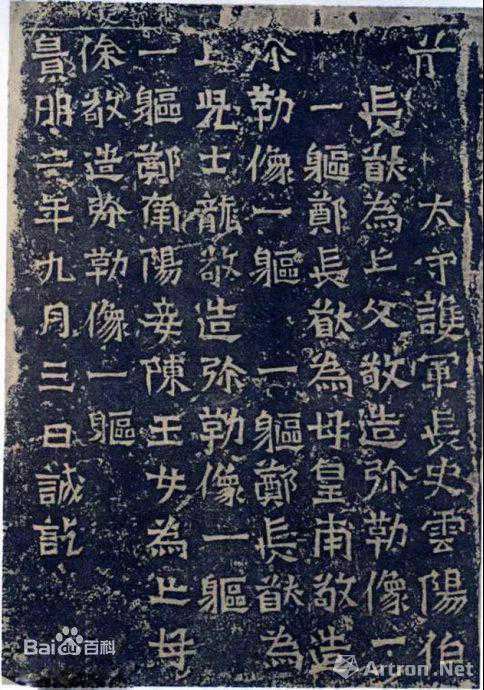 太守護軍長史雲陽伯
長猷為亡父敬造弥勒像一
一軀鄭長猷為母皇甫敬造
弥勒像一軀一軀鄭長猷為
亡児士龍敬造弥勒像一軀
一軀鄭南陽妾陳玉女為亡母
徐敬造弥勒像一軀
景明二年九月三日誠訖
Bai百科
Artron.Net